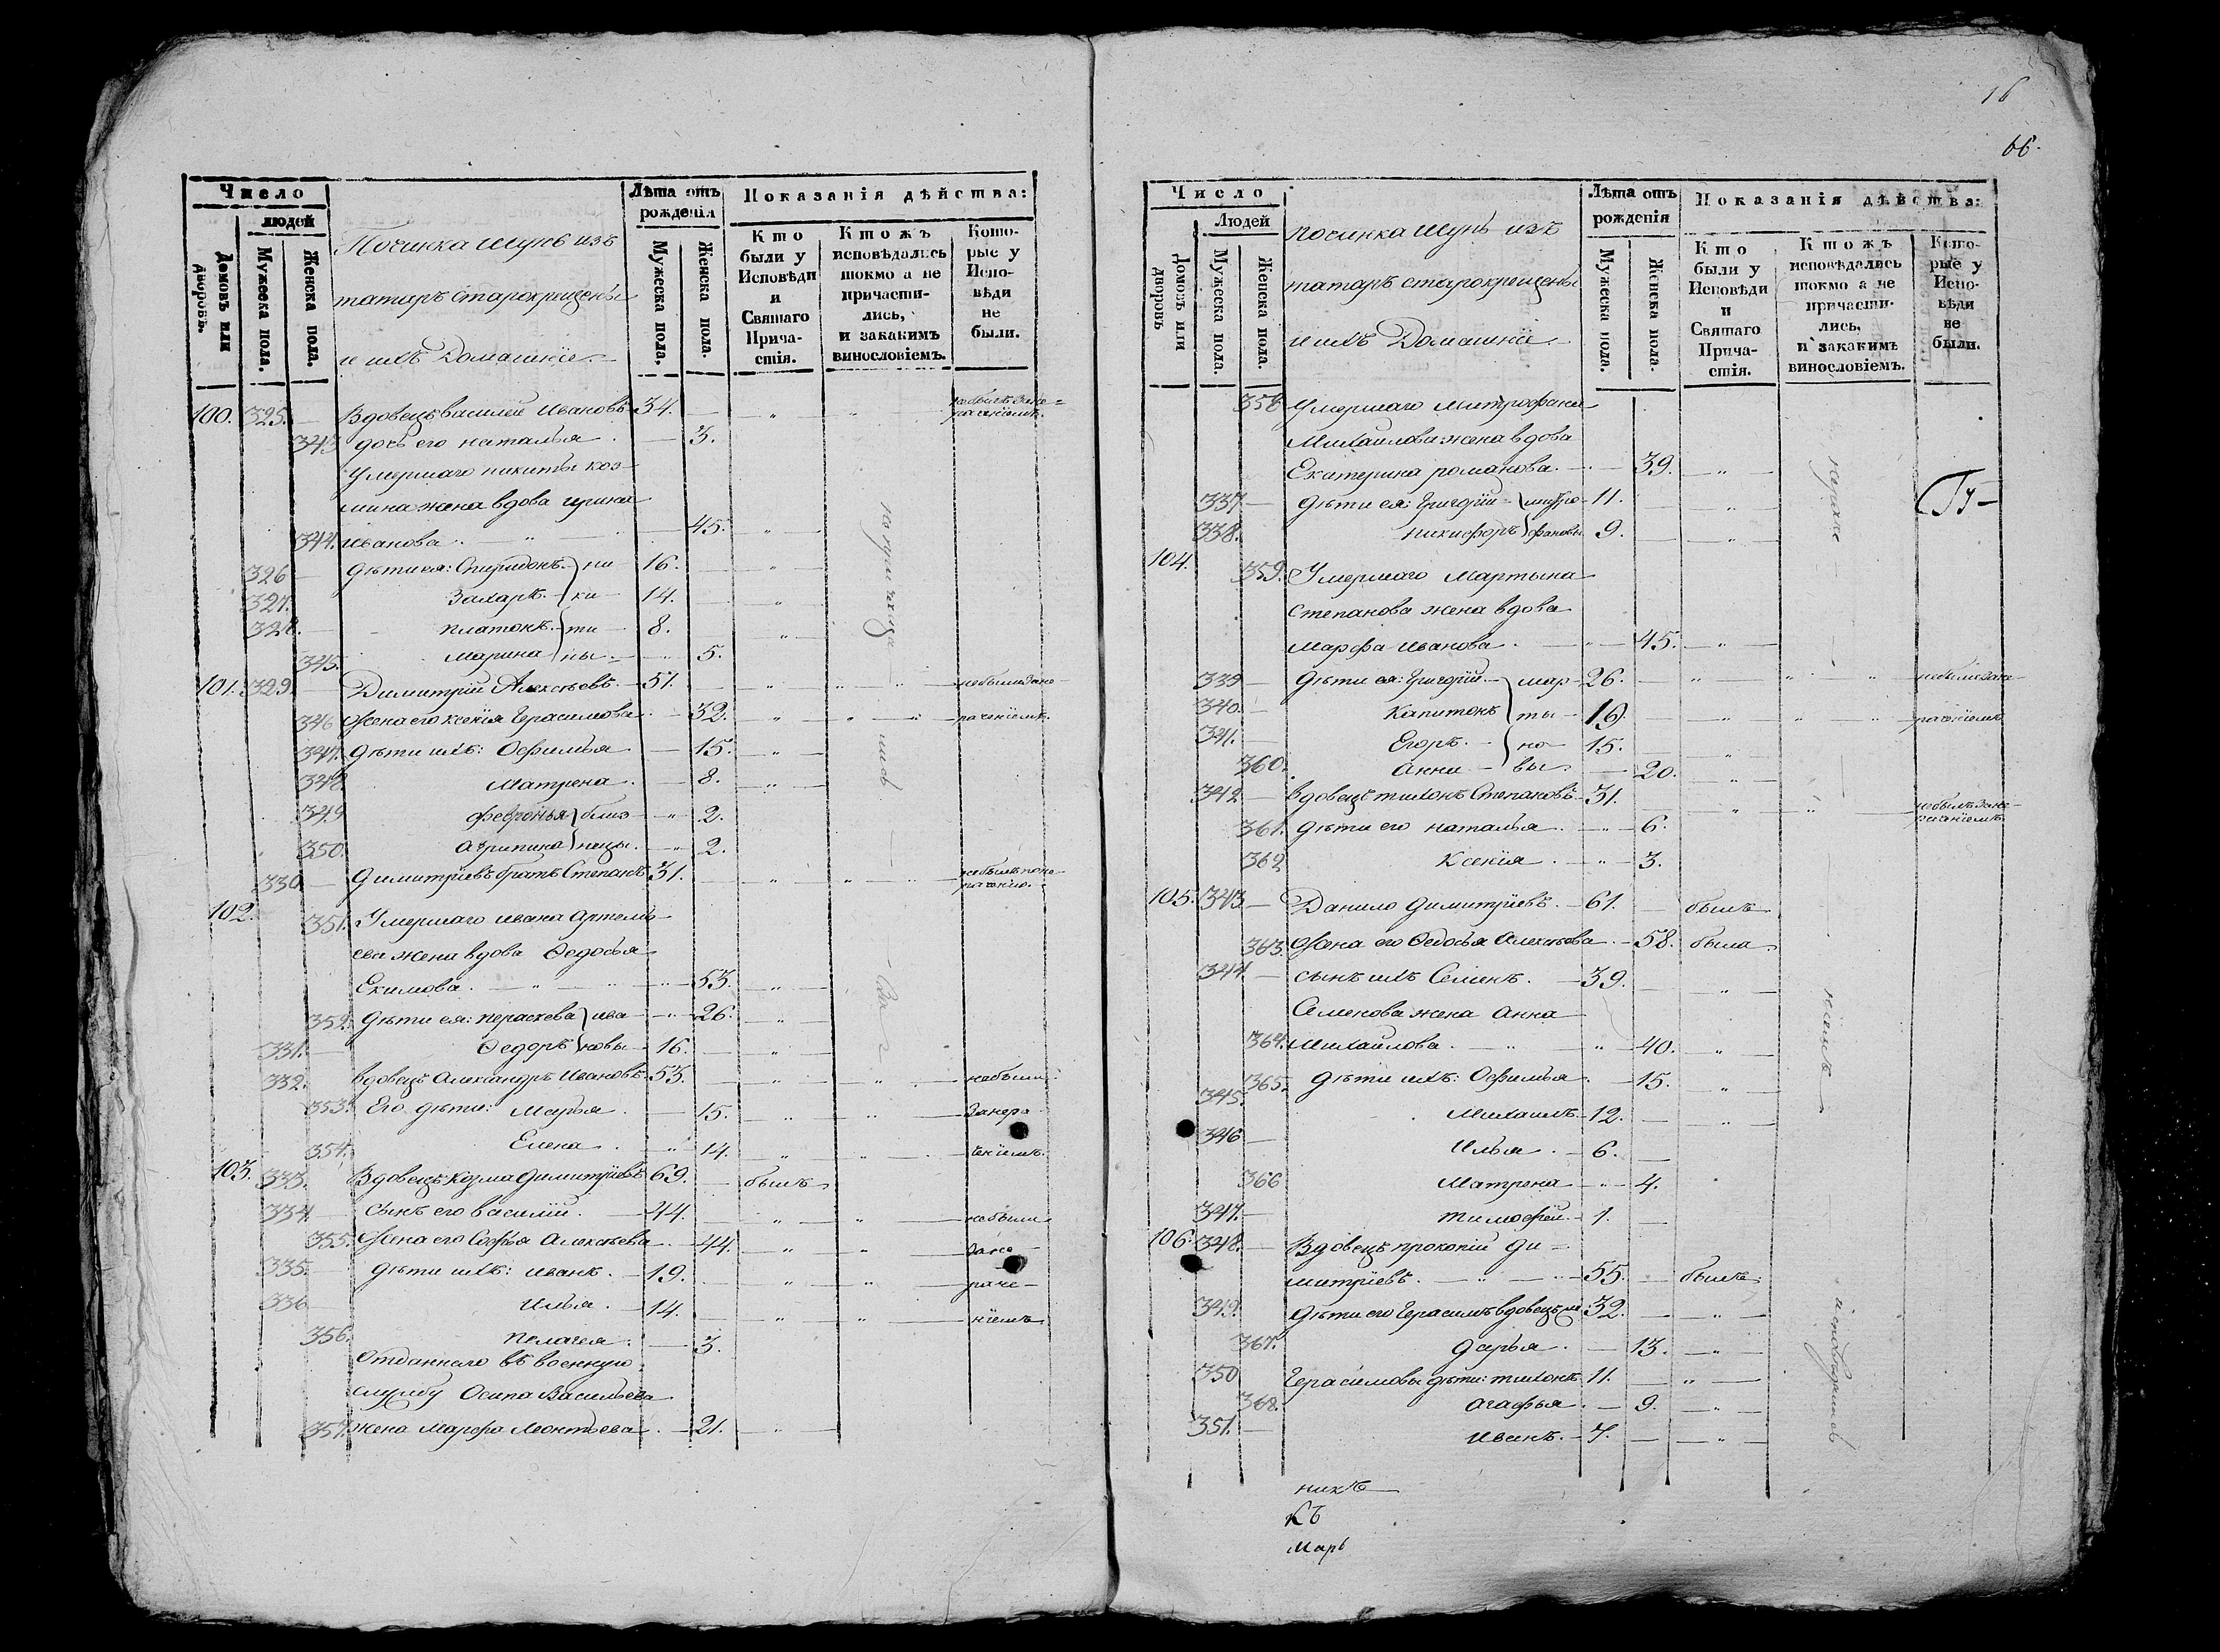 Число
людей
Домовъ или дворовъ.
Мужеска пола.
Женска пола.
Починка Шунь изъ
татаръ старокрещены
и ихъ Домашніе.
Лѣта отъ рожденія
Мужеска пола.
Женска пола.
Показанія дѣйства:
Кто были у Исповѣди и Святаго Прича-стія.
Ктожъ исповѣдались токмо а не причасти-лись, и закакимъ винословіемъ.
Кото-рые у Испо-вѣди не были.
100. 325. Вдовецъ василей Ивановъ 34. небылъ зане-раченіемъ.
343 дочь его наталья 3.
Умершаго никиты коз-
мина жена вдова ирина
344. Иванова 45.
326 Дѣти ея: Спиридонъ ни 16.
327. Захаръ ки 14.
328. платонъ ти 8.
345. марина ны 5.
101. 329. Димитрій Алексѣевъ 51. небыли зане-
346 Жена его ксенія Герасимова 32. раченіемъ.
347. Дѣти ихъ: Офимья 15.
348 Матрена 8.
349 февронья близ- 2.
350. агрипина нецы. 2.
330. Димитріевъ братъ Степанъ 31. небылъ поне-раченію.
102. 351. Умершаго ивана Артемь-
ева жена вдова Ѳедосья
Екимова 53.
352. Дѣти ея: параскева ива- 26.
331. Ѳедоръ новы 16.
332. вдовецъ Александръ Ивановъ 53. небыли
353. Его дѣти: Марья 15. занера-
354. Елена 14. ченіемъ.
103. 333. Вдовецъ козма Димитріевъ 69. былъ
334. Сынъ его василій 44. небыли
355. Жена его Софья Алексѣева 44. зане-
335. дѣти ихъ: иванъ 19. раче-
336 Илья 14. ніемъ
356. пелагея 3.
Отданнаго въ военную
службу Осипа Васильева
357. жена марфа Леонтьева 21.
16
66.
Число
Людей
Домовъ или дворовъ
Мужеска пола.
Женска пола.
починка Шунь изъ
татаръ старокрещены
и ихъ Домашніе
Лѣта отъ рожденія
Мужеска пола.
Женска пола.
Показанія дѣйства:
Кто были у Исповѣди и Святаго Прича-стія.
Ктожъ исповѣдались токмо а не причасти-лись, и закакимъ винословіемъ.
Кото-рые у Испо-вѣди не были.
358 Умершаго митрофана
Михаилова жена вдова
Екатерина романова 39.
337 дѣти ея: Григорій митро- 11.
338. никифоръ фановы 9.
104. 359. Умершаго мартына
степанова жена вдова
марфа иванова 45.
339 дѣти ея: Григорій мар- 26. небыли зане-
340. Капитонъ ты- 19. раченіемъ
341. Егоръ но- 15.
360. анна вы 20.
342 вдовецъ тихонъ Степановъ 31. небылъ зане-раченіемъ
361. дѣти его наталья 6.
362 Ксенія 3.
105. 343. Данило димитріевъ 61. былъ
363. Жена его Ѳедосья Алексѣева 58. была
344. сынъ ихъ Семенъ 39.
Семенова жена Анна
364. Михайлова 40.
365. дѣти ихъ: Офимья 15.
345. Михаилъ 12.
346 Илья 6.
366 Матрена 4.
347. тимофей 1.
106. 348. Вдовецъ прокопій Ди-
митріевъ 55. былъ
349. дѣти его Герасимъ вдовецъ 32.
367. дарья 13.
350 Герасимовы дѣти: тихонъ 11.
368. агафья 9.
351. иванъ 7.
никъ
къ
марь